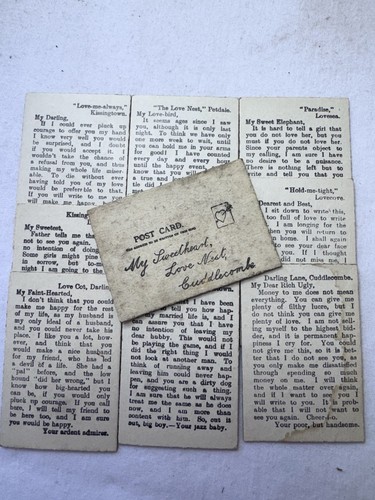 "Love-me-always,"
Kissingtown.
My Darling,
If I could ever pluck up
courage to offer you my hand
I know very well you would
be surprised, and I doubt
if you would accept it. I
wouldn't take the chance of
a refusal from you, and thus
making my whole life miser-
able. To die without ever
having told you of my love
would be preferable to that.
If you will write to me
"The Love Nest," Petdale.
My Love-bird,
It seems ages since I saw
you, although it is only last
night. To think we have only
one more week to wait, until
you can hold me in your arms
for good! I have counted
every day and every hour
until the happy event,
"Paradise,"
Lovesea.
My Sweet Elephant,
It is hard to tell a girl that
you do not love her, but you
do not know that you love her.
Since your parents object to
my calling, I am sure I have
no desire to be a nuisance.
There is nothing left but to
write and tell you that you
"Hold-me-tight,"
Lovernova.
Dearest and Best,
I sit down to write this,
too full of love to write
I am longing for the
you will return
home. I shall again
to see your dear face
if I thought
did not miss me, I
My Sweetest,
Father tells me that
not to see you again.
no intention of doing
Some girls might pine
in sorrow, but
night I am going to the
POST CARD.
My Sweetheart,
Love Nest,
Cuddlecombe
Love Cot,
My Faint-Hearted,
I don't think that you could
make me happy for the rest
of my life, as my husband is
my only ideal of a husband,
and you could never take his
place. I like you a lot, how-
ever, and think that you
would make a nice husband
for my friend, who has led
a devil of a life. She had a
"pal" before, and the low
bounder "did her wrong," but I
know how big-hearted you
can be, if you would only
pluck up courage. If you call
here, I will tell my friend
to be here too, and I am sure
you would be happy.
Your ardent admirer.
I have been
you how hap-
my married life is, and I
assure you that I have no
intention of leaving my
dear hubby. This would not
be playing the game, and if I
did the right thing I would
not look at another man. To
think of running away and
leaving him could never hap-
pen, and you are a dirty dog
for suggesting such a thing.
I am sure that he will always
treat me the same as he does
now, and I am more than
content with him. So, cut it
out, big boy.—Your jazz baby.
Darling Lane, Cuddlecombe.
My Dear Rich Ugly,
Money to me does not mean
everything. You can give me
plenty of filthy lucre, but I
do not think you can give me
plenty of love. I am not sell-
ing myself to the highest bid-
der, and it is permanent hap-
piness I cry for. You could
not give me this, so it is bet-
ter that I do not see you, as
you only make me dissatisfied
through spending so much
money on me. I will think
the whole matter over again,
and if I want to see you I
will write to you. It is prob-
able that I will not want to
see you again.
Your poor, but handsome.